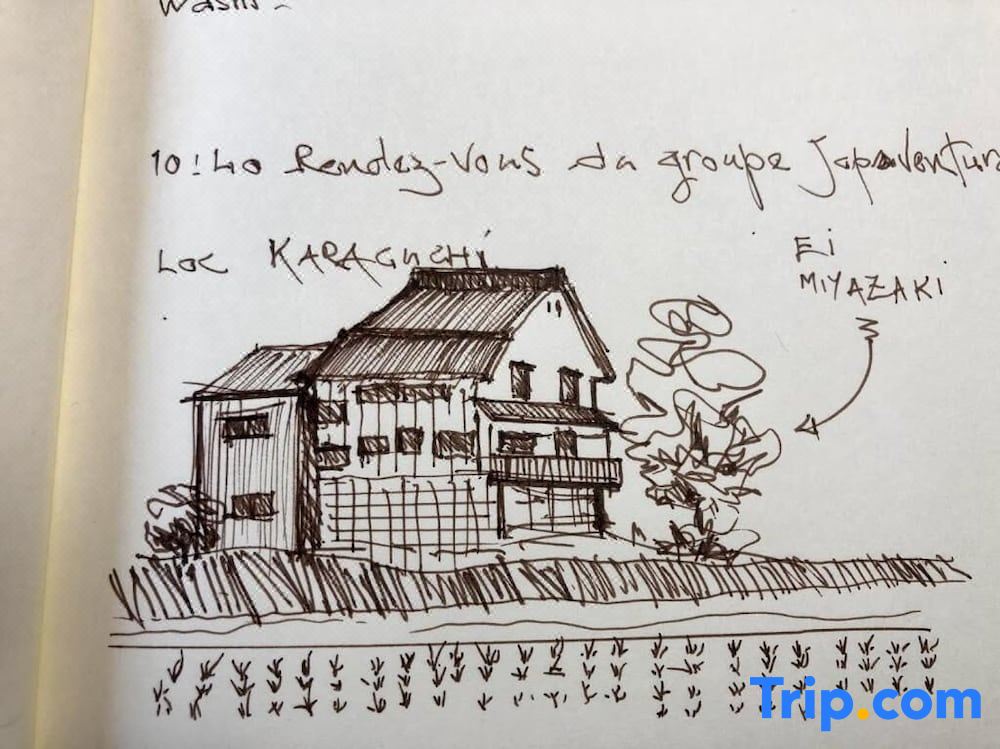 Washi-
10!40 Rendez-vous du groupe Japaventura
Loc KARAGUCHI
Ei
MIYAZAKI
Trip.com